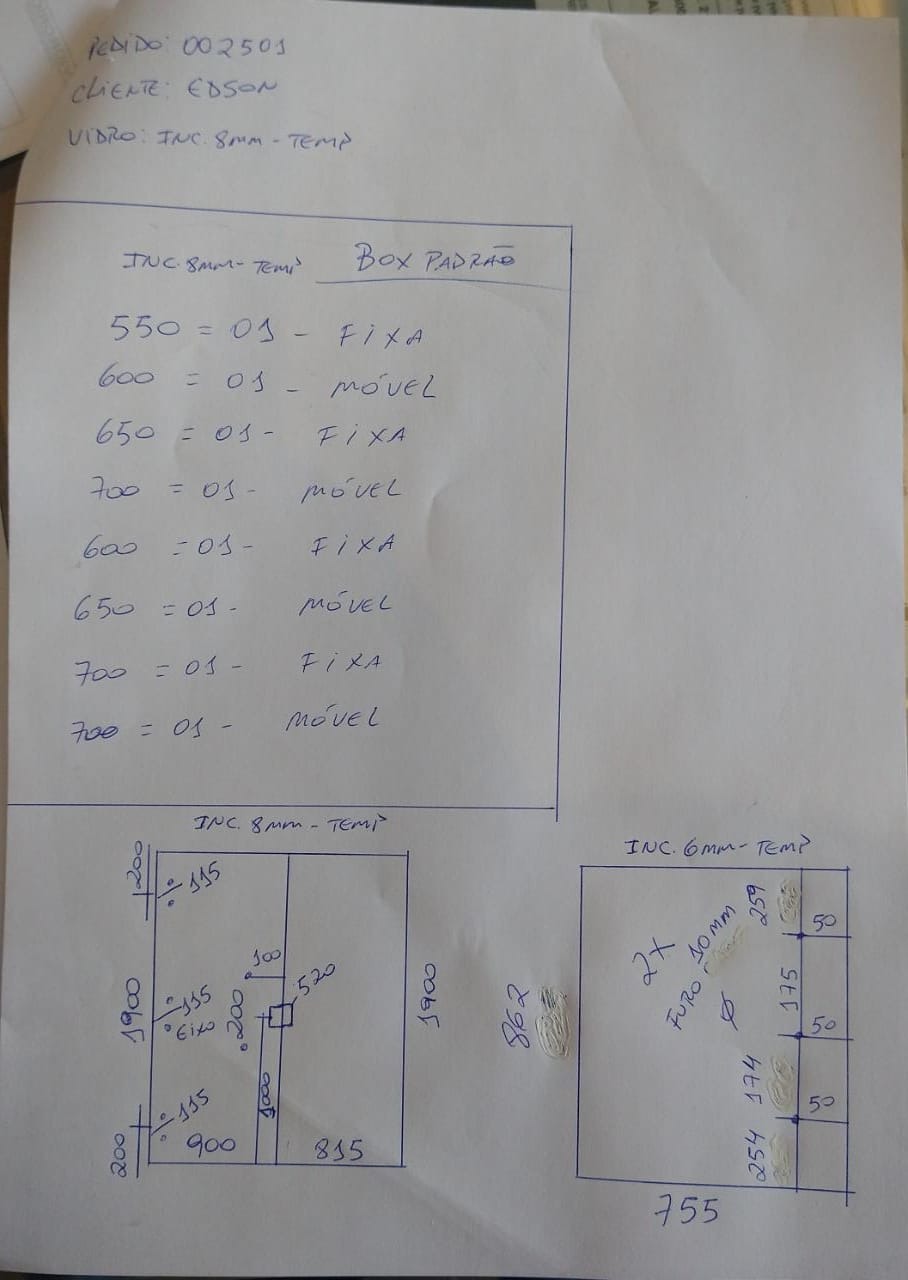 PEDIDO: 002501
CLIENTE: EDSON
VIDRO: INC. 8MM - TEMP
INC. 8MM - TEMP BOX PADRÃO
550 = 01 - FIXA
600 = 01 - MÓVEL
650 = 01 - FIXA
700 = 01 - MÓVEL
600 = 01 - FIXA
650 = 01 - MÓVEL
700 = 01 - FIXA
700 = 01 - MÓVEL
INC. 8MM - TEMP
200
115
1900
115
EIXO
200
115
100
200
520
1000
900
815
1900
INC. 6MM - TEMP
862
2X
FURO 10mm
Ø
259
175
174
254
50
50
50
755